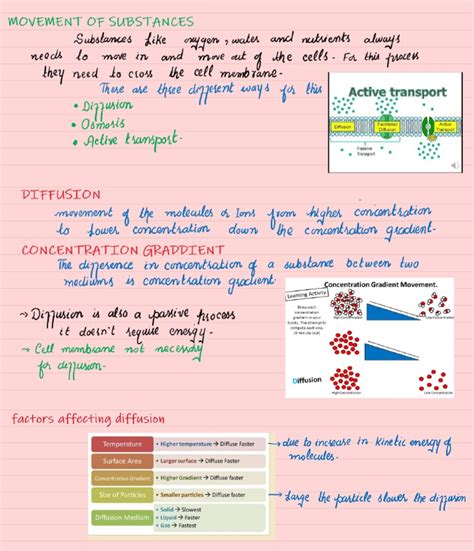 MOVEMENT OF SUBSTANCES
Substances like oxygen, water and nutrients always
needs to move in and move out of the cells. For this process
they need to cross the cell membrane.
There are three different ways for this
• Diffusion
• Osmosis
• Active transport.
Active transport
Diffusion
Facilitated Diffusion
Active Transport
Passive Transport
DIFFUSION
movement of the molecules or Ions from higher concentration
to lower concentration down the concentration gradient.
CONCENTRATION GRADDIENT
The difference in concentration of a substance between two
mediums is concentration gradient.
Concentration Gradient Movement.
Learning Activity
High Concentration
Low Concentration
Diffusion
High Concentration
Low Concentration
→ Diffusion is also a passive process
it doesn't require energy.
→ Cell membrane not necessary
for diffusion.
factors affecting diffusion
Temperature • Higher temperature → Diffuse Faster
→ due to increase in kinetic energy of
molecules.
Surface Area • Larger surface → Diffuse Faster
Concentration Gradient • Higher Gradient → Diffuse Faster
Size of Particles • Smaller particles → Diffuse faster
→ Large the particle slower the diffusion
Diffusion Medium • Solid → Slowest
• Liquid → Faster
• Gas → Fastest